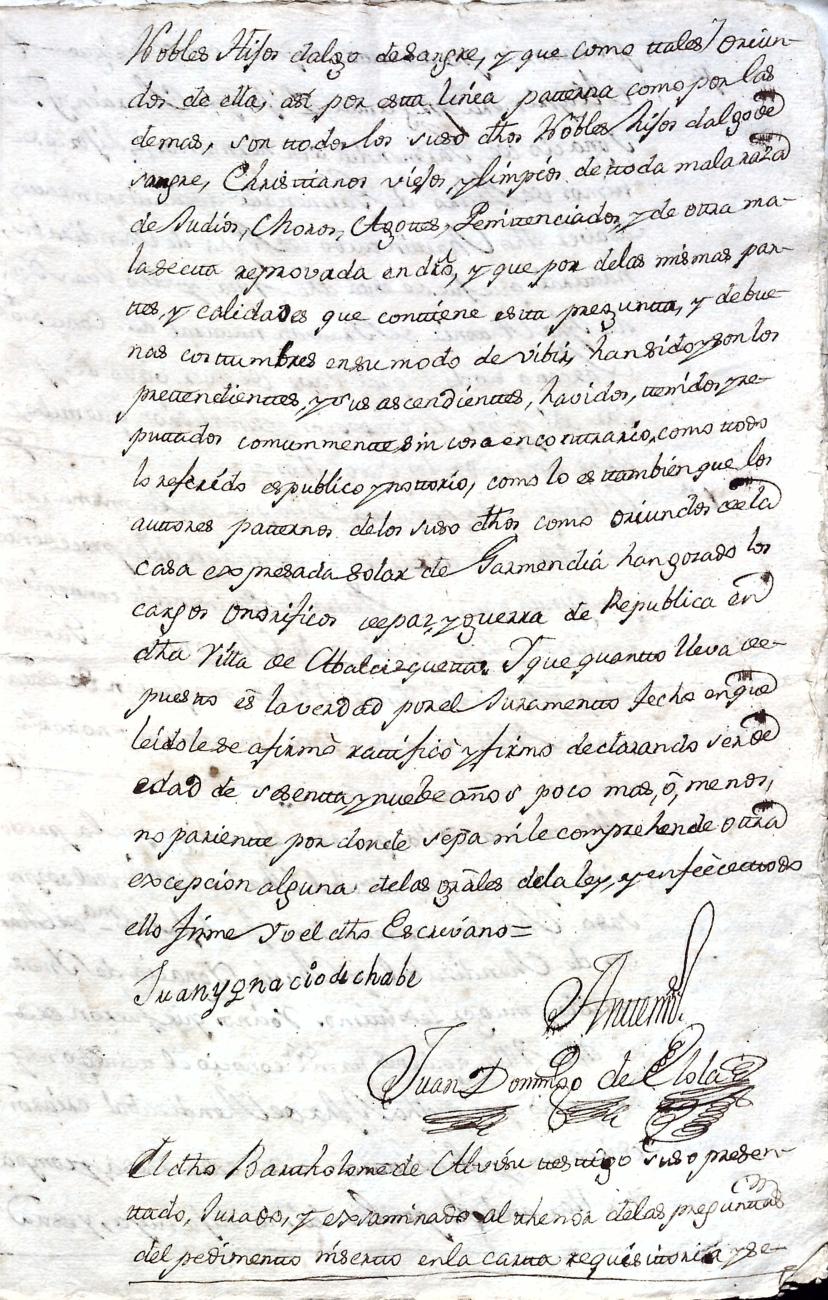 Nobles Hijos dalgo de sangre, y que como ttales oriun-
dos de ella, asi por estta linea patterna como por las
demas, son ttodos los suso dhos Nobles hijos dalgo de
sangre, Christtianos viejos, y limpios de ttoda mala raza
de Judios, Moros, Agottes, Penittenciados, y de ottra ma-
la sectta reprovada en dro, y que por de las mismas par-
ttes, y calidades que conttiene estta preguntta, y de bue-
nas costtumbres en su modo de vibir, han sido y son los
prettendienttes, y sus ascendienttes, havidos, ttenidos y re-
puttados comunmentte sin cosa en conttrario, como ttodo
lo referido es publico y nottorio, como lo es ttambien que los
auttores patternos de los suso dhos como oriundos de la
casa expresada solar de Garmendia han gozado los
cargos onorificos de paz, y guerra de Republica en
dha Villa de Abalcizquetta. Y que quantto lleva de-
puestto es la verdad por el Juramentto fecho en que
leidole se afirmò rattificò y firmo declarando ser de
edad de sesentta y nuebe años poco mas, ò, menos,
no parientte por donde sepa ni le comprehende ottra
excepcion alguna de las grâles de la ley, y en feè de ttodo
ello firme Yo el dho Escrivano =
Juan ygnacio de chabe
Antte mi
Juan Domingo de Elola
El dho Bartholome de Albisu ttesttigo suso presen-
ttado, Jurado, y examinado al thenor de las pregunttas
del pedimentto insertto en la cartta requisittoria y se-